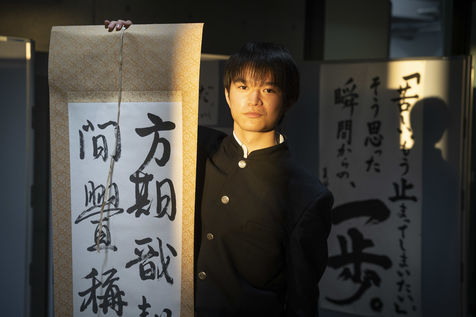 方期
間 稱
「苦しい、もう止まってしまいたい」
そう思った
瞬間からの、
一歩。